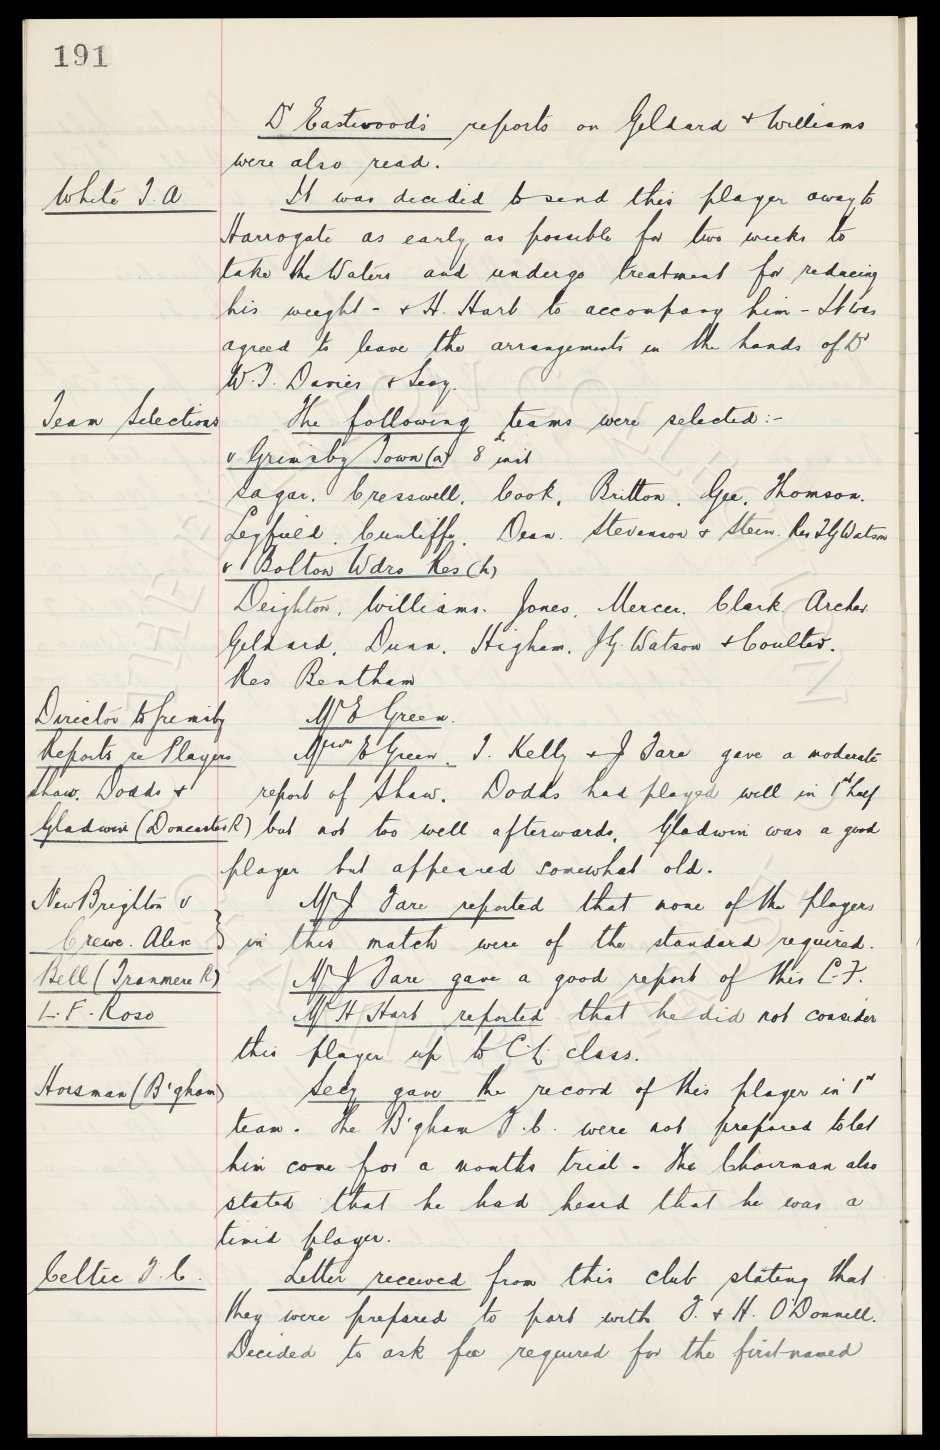 191
Dr Eastwood's reports on Geldard & Williams
were also read.
White T. A It was decided to send this player away to
Harrogate as early as possible for two weeks to
take the Waters and undergo treatment for reducing
his weight - & H. Hart to accompany him - It was
agreed to leave the arrangements in the hands of Dr
W.T. Davies & Secy.
Team Selections The following teams were selected :-
v Grimsby Town (a) 8th inst
Sagar. Cresswell. Cook. Britton. Gee. Thomson.
Leyfield. Cunliffe. Dean. Stevenson & Stein. Res T G Watson
v Bolton Wdrs Res (h)
Deighton. Williams. Jones. Mercer. Clark. Archer
Geldard. Dunn. Higham. J G. Watson & Coulter.
Res Bentham
Director to Grimsby Mr E Green.
Reports re Players Messrs E Green, T. Kelly & J Fare gave a moderate
Shaw. Dodds & report of Shaw. Dodds had played well in 1st half
Gladwin (Doncaster R) but not too well afterwards. Gladwin was a good
player but appeared somewhat old.
New Brighton v Mr J Fare reported that none of the players
Crewe. Alex } in this match were of the standard required.
Bell (Tranmere R) Mr J Fare gave a good report of this C.F.
L. F. Roso Mr H Hart reported that he did not consider
this player up to C.L. class.
Horsman (B'gham) Secy gave the record of this player in 1st
team. The B'gham F.C. were not prepared to let
him come for a months trial - The Chairman also
stated that he had heard that he was a
timid player.
Celtic F.C. Letter received from this club stating that
they were prepared to part with F. & H. O'Donnell.
Decided to ask fee required for the first-named